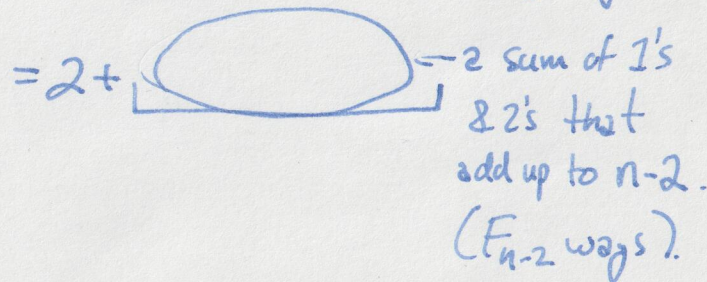 = 2 + a sum of 1's
& 2's that
add up to n-2.
(F_{n-2} ways).